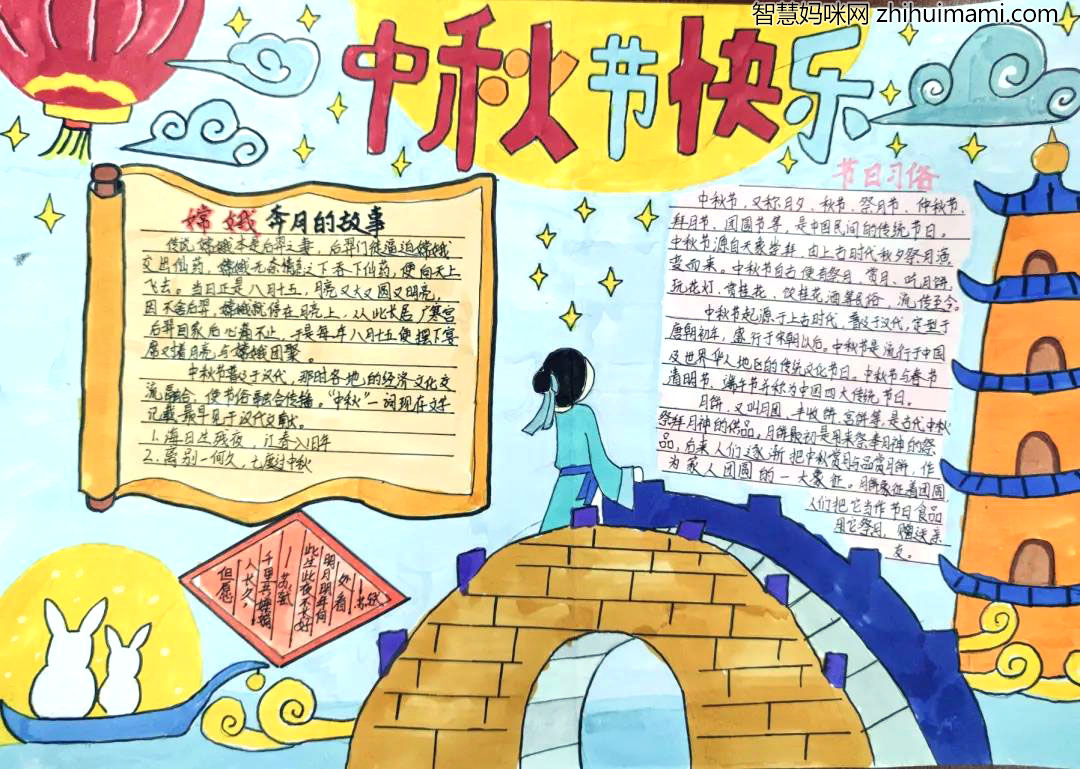 智慧妈咪网 zhihuimami.com
中秋节快乐
嫦娥奔月的故事
传说嫦娥本是后羿之妻，后羿门徒逼迫嫦娥
交出仙药，嫦娥无奈情急之下吞下仙药，便向天上
飞去。当日正是八月十五，月亮又大又圆又明亮，
因不舍后羿，嫦娥就停在月亮上，从此长居广寒宫
后羿回家后心痛不止，于是每年八月十五便摆下宴
席对着月亮与嫦娥团聚。
中秋节普及于汉代，那时各地的经济文化交
流融合，使节俗融合传播。“中秋”一词现在文字
记载最早见于汉代文献。
1.海日生残夜，江春入旧年
2.离别一何久，七度过中秋
节日习俗
中秋节，又称月夕、秋节、祭月节、仲秋节、
拜月节、团圆节等，是中国民间的传统节日。
中秋节源自天象崇拜，由上古时代秋夕祭月演
变而来。中秋节自古便有祭月、赏月、吃月饼、
玩花灯、赏桂花、饮桂花酒等民俗，流传至今。
中秋节起源于上古时代，普及于汉代，定型于
唐朝初年，盛行于宋朝以后。中秋节是流行于中国
及世界华人地区的传统文化节日。中秋节与春节
清明节、端午节并称为中国四大传统节日。
月饼，又叫月团、丰收饼、宫饼等，是古代中秋
祭拜月神的供品，月饼最初是用来祭奉月神的祭
品，后来人们逐渐把中秋赏月与品尝月饼，作
为家人团圆的一大象征。月饼象征着团圆，
人们把它当作节日食品
用它祭月，赠送亲
友。
此生此夜不长好
明月明年何
处看
—苏轼
但愿
人长久，
千里共婵娟
—苏轼